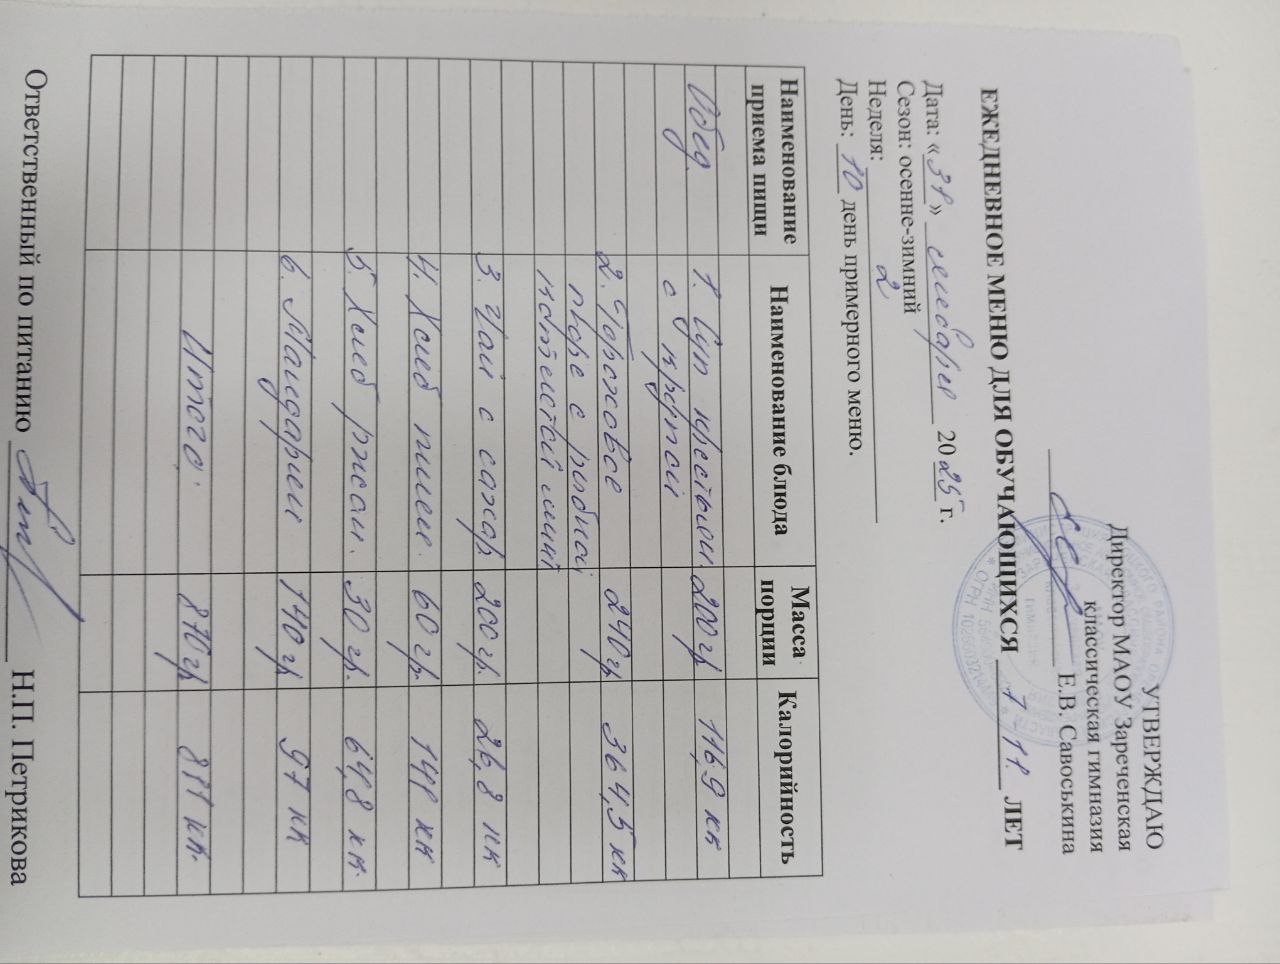 УТВЕРЖДАЮ
Директор МАОУ Зареченская
классическая гимназия
Е.В. Савоськина
ЕЖЕДНЕВНОЕ МЕНЮ ДЛЯ ОБУЧАЮЩИХСЯ 7 11 ЛЕТ
Дата: «31» 2025 г.
Сезон: осенне-зимний
Неделя: 2
День: 10 день примерного меню.
Наименование приема пищи Наименование блюда Масса порции Калорийность
Обед 1. Суп крестьян 200 гр 116,9 кк
с крупой
2. Гороховое 240 гр 364,5 кк
пюре с рыбной
котлетой
3. Чай с сахар 200 гр. 26,8 кк
4. Хлеб пшен. 60 гр. 141 кк
5. Хлеб ржан. 30 гр. 64,8 кк.
6. Мандарин 140 гр 97 кк
Итого: 870 гр 811 кк.
Ответственный по питанию Н.П. Петрикова